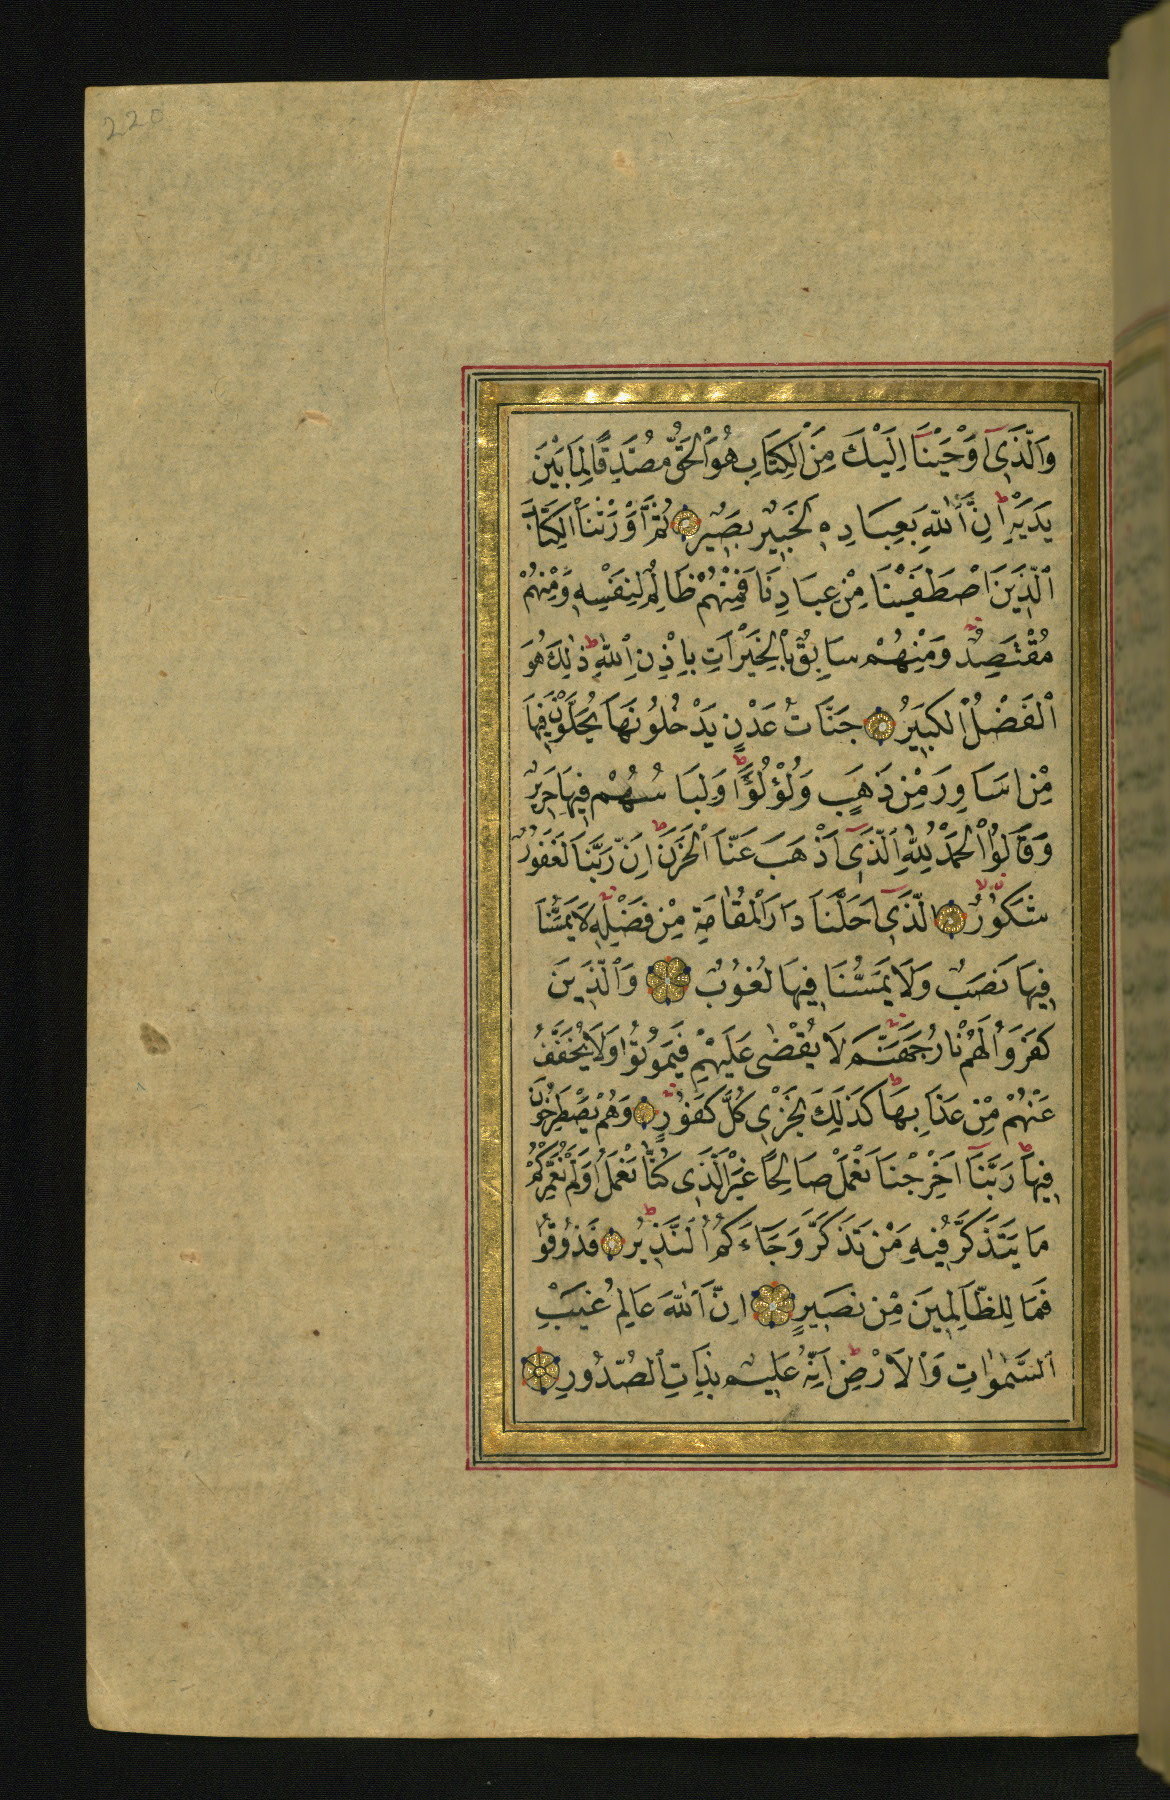 220
وَالَّذَىٓ اَوْحَيْنَٓا اِلَيْكَ مِنَ الْكِتَابِ هُوَ الْحَقُّ مُصَدِّقًا لِمَا بَيْنَ
يَدَيْهِ اِنَّ اللّٰهَ بِعِبَادِهٖ لَخَبِيرٌ بَصِيرٌ ثُمَّ اَوْرَثْنَا الْكِتَابَ
الَّذِينَ اصْطَفَيْنَا مِنْ عِبَادِنَا فَمِنْهُمْ ظَالِمٌ لِنَفْسِهِ وَمِنْهُمْ
مُقْتَصِدٌ وَمِنْهُمْ سَابِقٌ بِالْخَيْرَاتِ بِاِذْنِ اللّٰهِ ذٰلِكَ هُوَ
الْفَضْلُ الْكَبِيرُ جَنَّاتُ عَدْنٍ يَدْخُلُونَهَا يُحَلَّوْنَ فِيهَا
مِنْ اَسَاوِرَ مِنْ ذَهَبٍ وَلُؤْلُؤًا وَلِبَاسُهُمْ فِيهَا حَرِيرٌ
وَقَالُوا الْحَمْدُ لِلّٰهِ الَّذَىٓ اَذْهَبَ عَنَّا الْحَزَنَ اِنَّ رَبَّنَا لَغَفُورٌ
شَكُورٌ الَّذَىٓ اَحَلَّنَا دَارَ الْمُقَامَةِ مِنْ فَضْلِهِ لَا يَمَسُّنَا
فِيهَا نَصَبٌ وَلَا يَمَسُّنَا فِيهَا لُغُوبٌ وَالَّذِينَ
كَفَرُوا لَهُمْ نَارُ جَهَنَّمَ لَا يُقْضٰى عَلَيْهِمْ فَيَمُوتُوا وَلَا يُخَفَّفُ
عَنْهُمْ مِنْ عَذَابِهَا كَذٰلِكَ نَجْزِى كُلَّ كَفُورٍ وَهُمْ يَصْطَرِخُونَ
فِيهَا رَبَّنَٓا اَخْرِجْنَا نَعْمَلْ صَالِحًا غَيْرَ الَّذَى كُنَّا نَعْمَلُ اَوَلَمْ نُعَمِّرْكُمْ
مَا يَتَذَكَّرُ فِيهِ مَنْ تَذَكَّرَ وَجَاءَكُمُ النَّذِيرُ فَذُوقُوا
فَمَا لِلظَّالِمِينَ مِنْ نَصِيرٍ اِنَّ اللّٰهَ عَالِمُ غَيْبِ
السَّمٰوَاتِ وَالْاَرْضِ اِنَّهُ عَلِيمٌ بِذَاتِ الصُّدُورِ